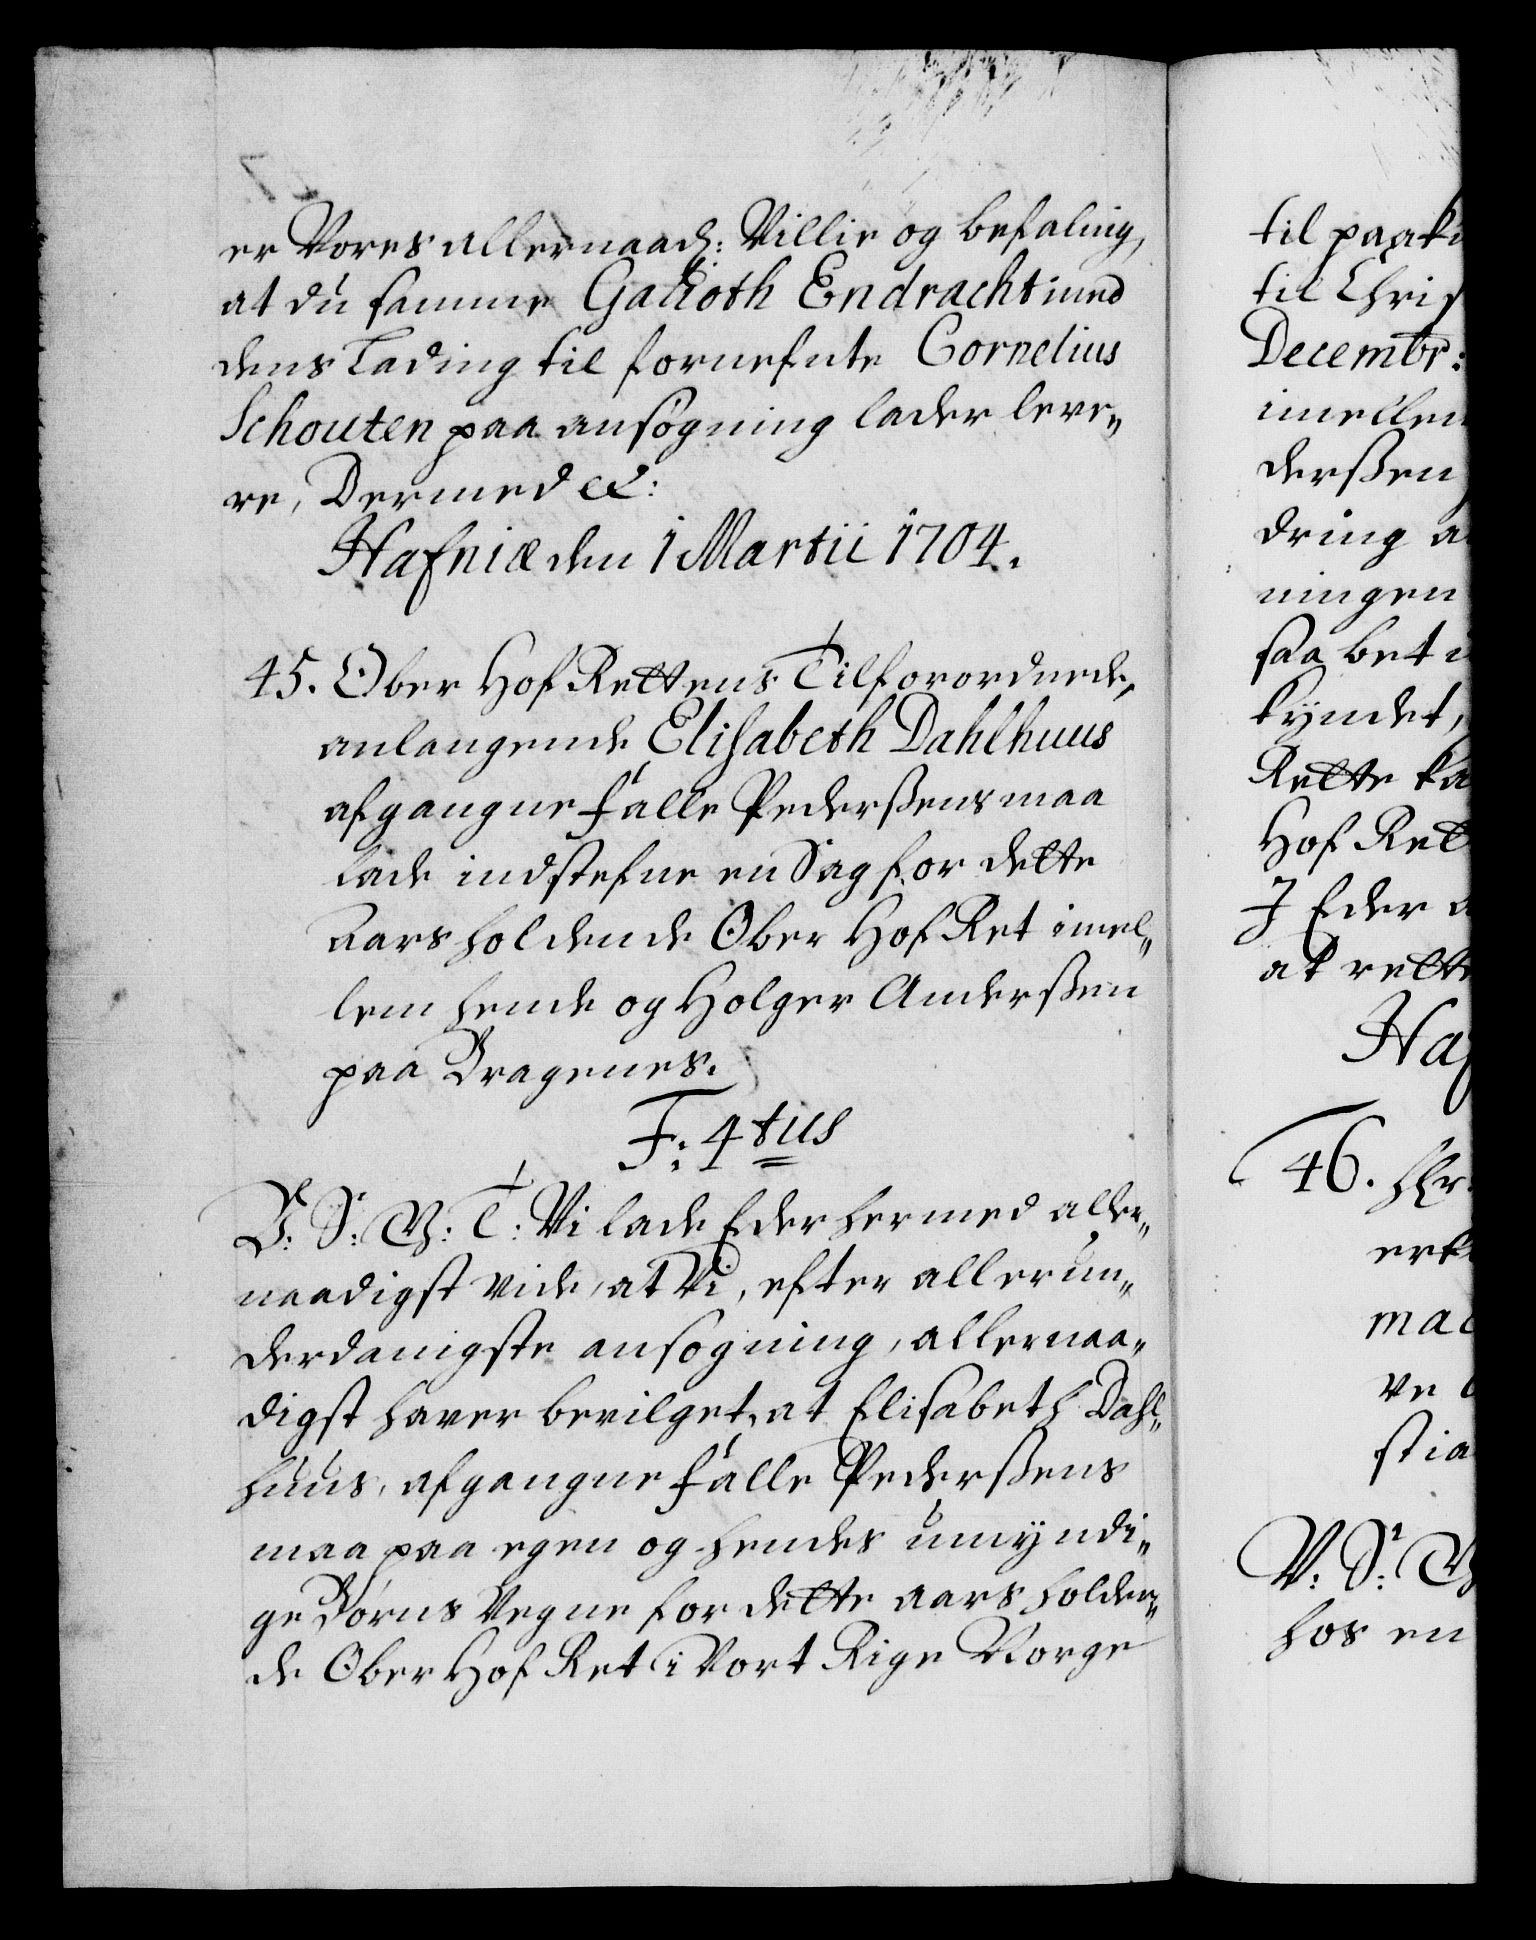 er Vores allernaad: Villie og befaling,
at du samme Gallioth Endracht med
dens Lading til fornefnte Cornelius
Schouten paa ansøgning lader leve„
re, Dermed &:
Hafniæ den 1 Martii 1704.
45. Ober Hof Rettens Tilforordnede,
anlangende Elisabeth Dahlhuus
afgangne Palle Pederßens maa
lade indstefne en Sag for dette
Aars holdende Ober Hof Ret imel„
lem hende og Holger Anderßen
paa Bragenes.
F: 4tus
V: S: G: T: Vi lade Eder hermed aller„
naadigst vide, at Vi, efter allerun„
derdanigste ansøgning, allernaa„
digst haver bevilget, at Elisabeth Dahl„
huus, afgangne Palle Pederßens
maa paa egen og hendes umÿndi„
ge Børns Vegne for dette aars holden„
de Ober Hof Ret i Vort Rige Norge
til paak
til Chris
Decembr:
imellem
derßen
dring a
ningen
saa bet
kÿndet,
Rette ka
Hof Ret
I Eder a
at rette
Haf
46.
ma
ve
stia
V: S:
hos en